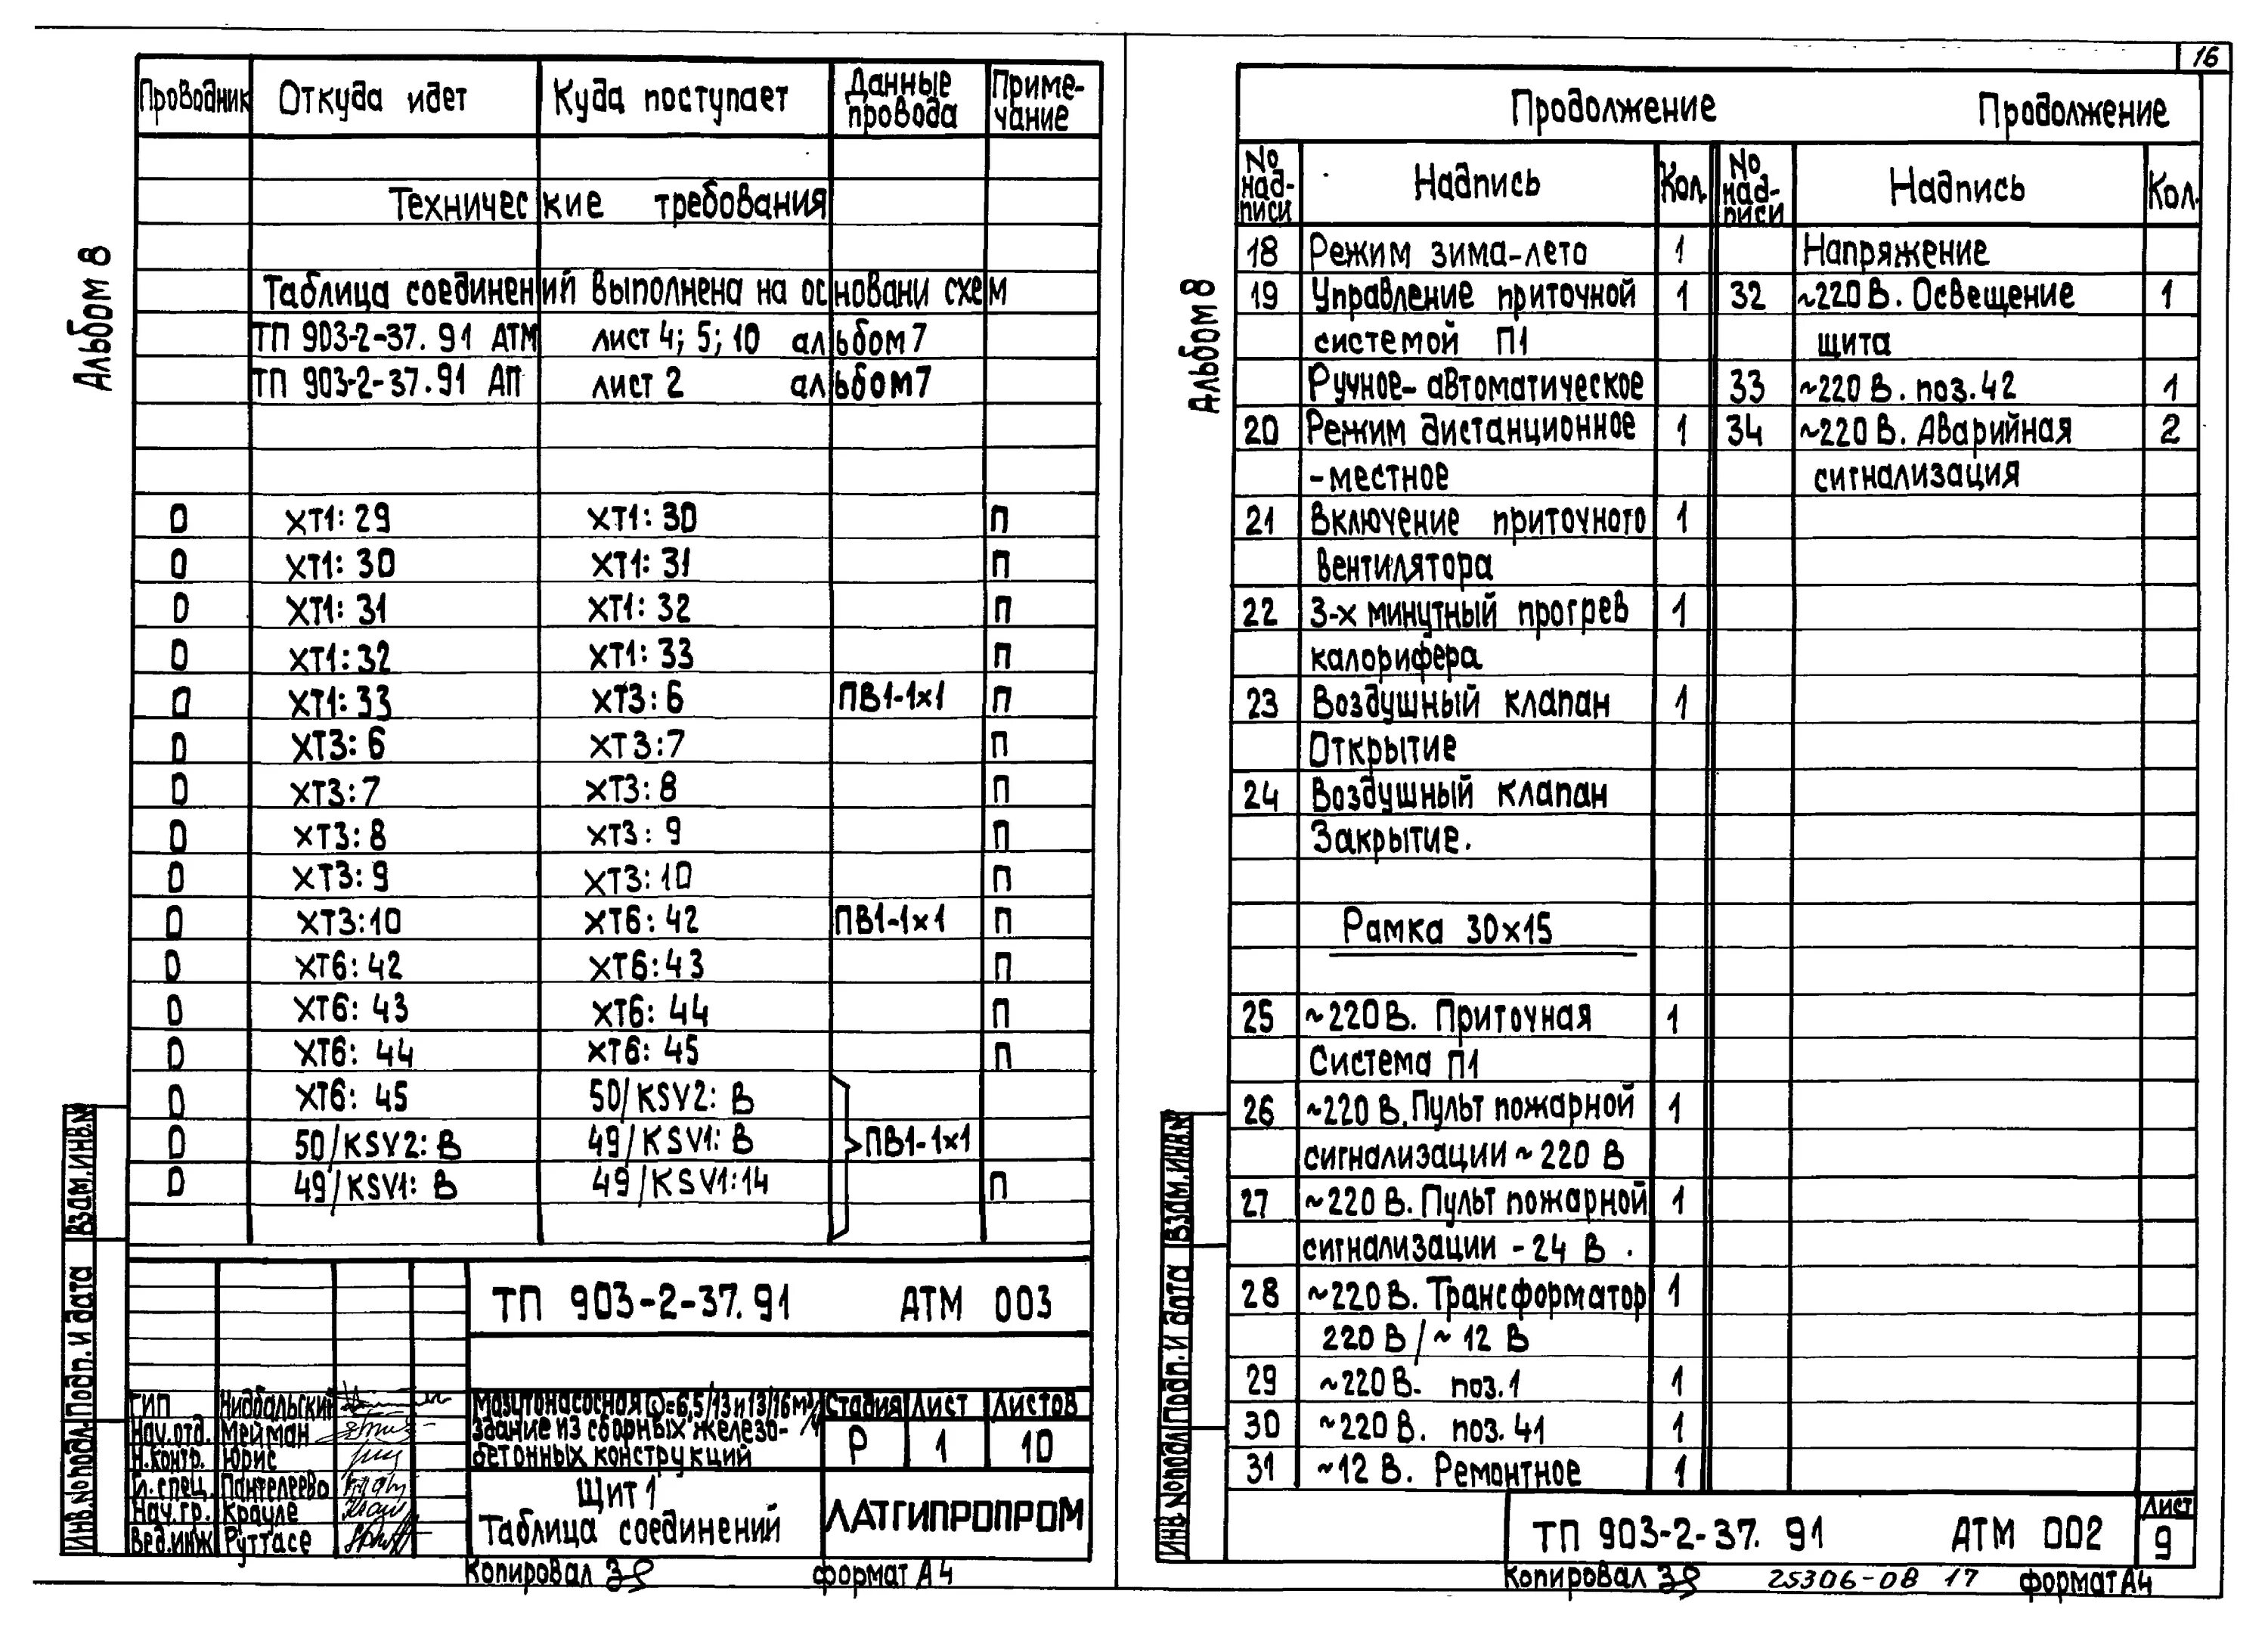 16
Альбом 8
Проводник Откуда идет Куда поступает Данные провода Приме-чание
Технические требования
Таблица соединений выполнена на основани схем
ТП 903-2-37.91 АТМ лист 4; 5; 10 альбом 7
ТП 903-2-37.91 АП лист 2 альбом 7
0 ХТ1: 29 ХТ1: 30 П
0 ХТ1: 30 ХТ1: 31 П
0 ХТ1: 31 ХТ1: 32 П
0 ХТ1: 32 ХТ1: 33 П
0 ХТ1: 33 ХТ3: 6 ПВ1-1х1 П
0 ХТ3: 6 ХТ3: 7 П
0 ХТ3: 7 ХТ3: 8 П
0 ХТ3: 8 ХТ3: 9 П
0 ХТ3: 9 ХТ3: 10 П
0 ХТ3: 10 ХТ6: 42 ПВ1-1х1 П
0 ХТ6: 42 ХТ6: 43 П
0 ХТ6: 43 ХТ6: 44 П
0 ХТ6: 44 ХТ6: 45 П
0 ХТ6: 45 50/KSV2: В
0 50/KSV2: В 49/KSV1: В ПВ1-1х1
0 49/KSV1: В 49/KSV1: 14 П
ТП 903-2-37.91 АТМ 003
ГИП Нидбальский
Нач.отд. Мейман
Н.контр. Юрис
Гл.спец. Пантелеева
Нач.гр. Крауле
Вед.инж Руттасе
Мазутонасосная Q=6,5/13 и 13/16 м³/ч
Здание из сборных железо-
бетонных конструкций
Стадия Лист Листов
Р 1 10
Щит 1
Таблица соединений
ЛАТГИПРОПРОМ
Копировал формат А4
Инв.№подл. Подп. и дата Взам.инв.№
Альбом 8
Продолжение Продолжение
№ над-писи Надпись Кол. № над-писи Надпись Кол.
18 Режим зима-лето 1 Напряжение
19 Управление приточной 1 32 ~220 В. Освещение 1
системой П1 щита
Ручное- автоматическое 33 ~220 В. поз. 42 1
20 Режим дистанционное 1 34 ~220 В. Аварийная 2
-местное сигнализация
21 Включение приточного 1
вентилятора
22 3-х минутный прогрев 1
калорифера
23 Воздушный клапан 1
Открытие
24 Воздушный клапан
Закрытие.
Рамка 30х15
25 ~220 В. Приточная 1
Система П1
26 ~220 В. Пульт пожарной 1
сигнализации ~ 220 В
27 ~220 В. Пульт пожарной 1
сигнализации - 24 В.
28 ~220 В. Трансформатор 1
220 В / ~ 12 В
29 ~220 В. поз. 1 1
30 ~220 В. поз. 41 1
31 ~12 В. Ремонтное 1
ТП 903-2-37.91 АТМ 002
Лист
9
Копировал 25306-08 17 формат А4
Инв.№подл. Подп. и дата Взам.инв.№